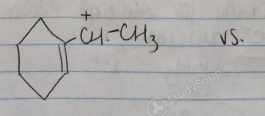 +
CH-CH3 vs.
StudySoup